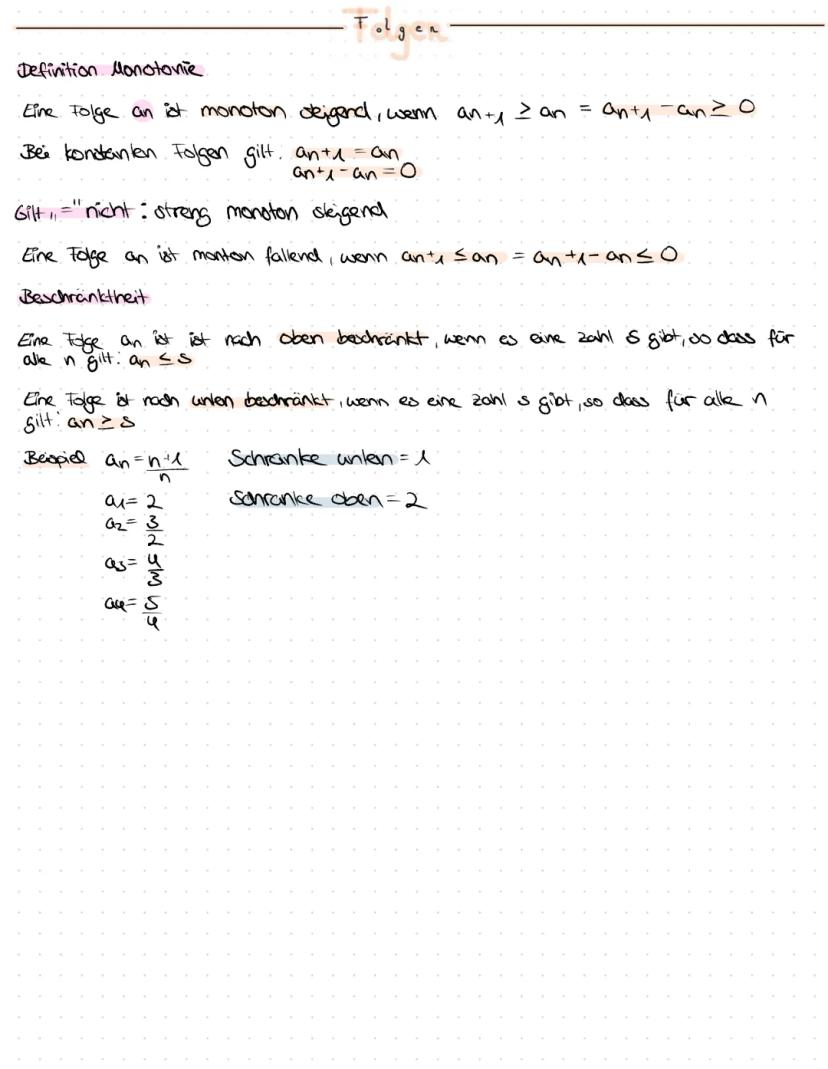 Folgen
Definition Monotonie
Eine Folge an ist monoton steigend, wenn an+1 ≥ an = an+1 - an ≥ 0
Bei konstanten Folgen gilt: an+1 = an
an+1 - an = 0
Gilt „=" nicht : streng monoton steigend
Eine Folge an ist monton fallend, wenn an+1 ≤ an = an+1 - an ≤ 0
Beschränktheit
Eine Folge an ist ist nach oben beschränkt, wenn es eine zahl S gibt, so dass für
alle n gilt: an ≤ s
Eine Folge ist nach unten beschränkt, wenn es eine zahl s gibt, so dass für alle n
gilt: an ≥ s
Beispiel an = n+1/n Schranke unten = 1
a1 = 2 Schranke oben = 2
a2 = 3/2
a3 = 4/3
a4 = 5/4